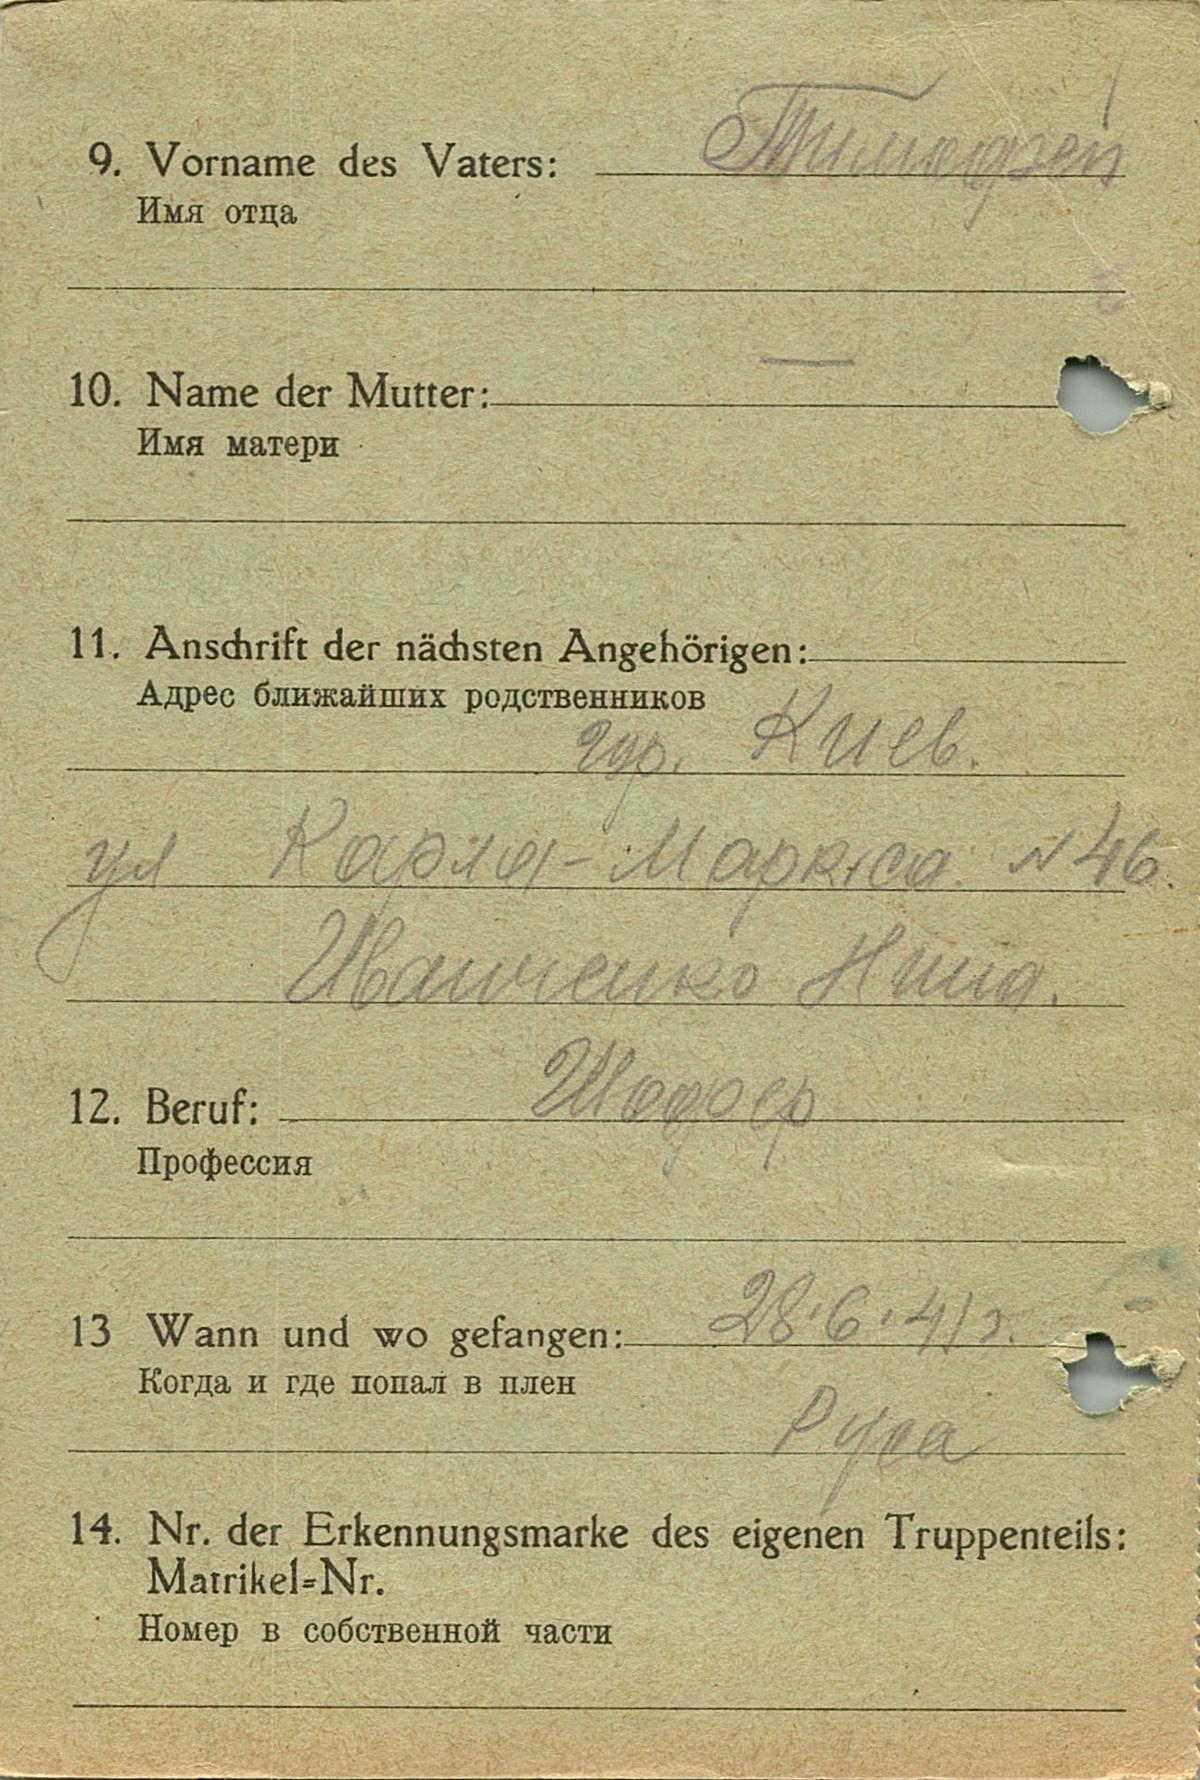 9. Vorname des Vaters: Тимофей
Имя отца
10. Name der Mutter: —
Имя матери
11. Anschrift der nächsten Angehörigen:
Адрес ближайших родственников
гор. Киев.
ул Карла-Маркса N 46.
Иванченко Нина.
12. Beruf: Шофер
Профессия
13 Wann und wo gefangen: 28.6.41г.
Когда и где попал в плен
14. Nr. der Erkennungsmarke des eigenen Truppenteils:
Matrikel=Nr.
Номер в собственной части